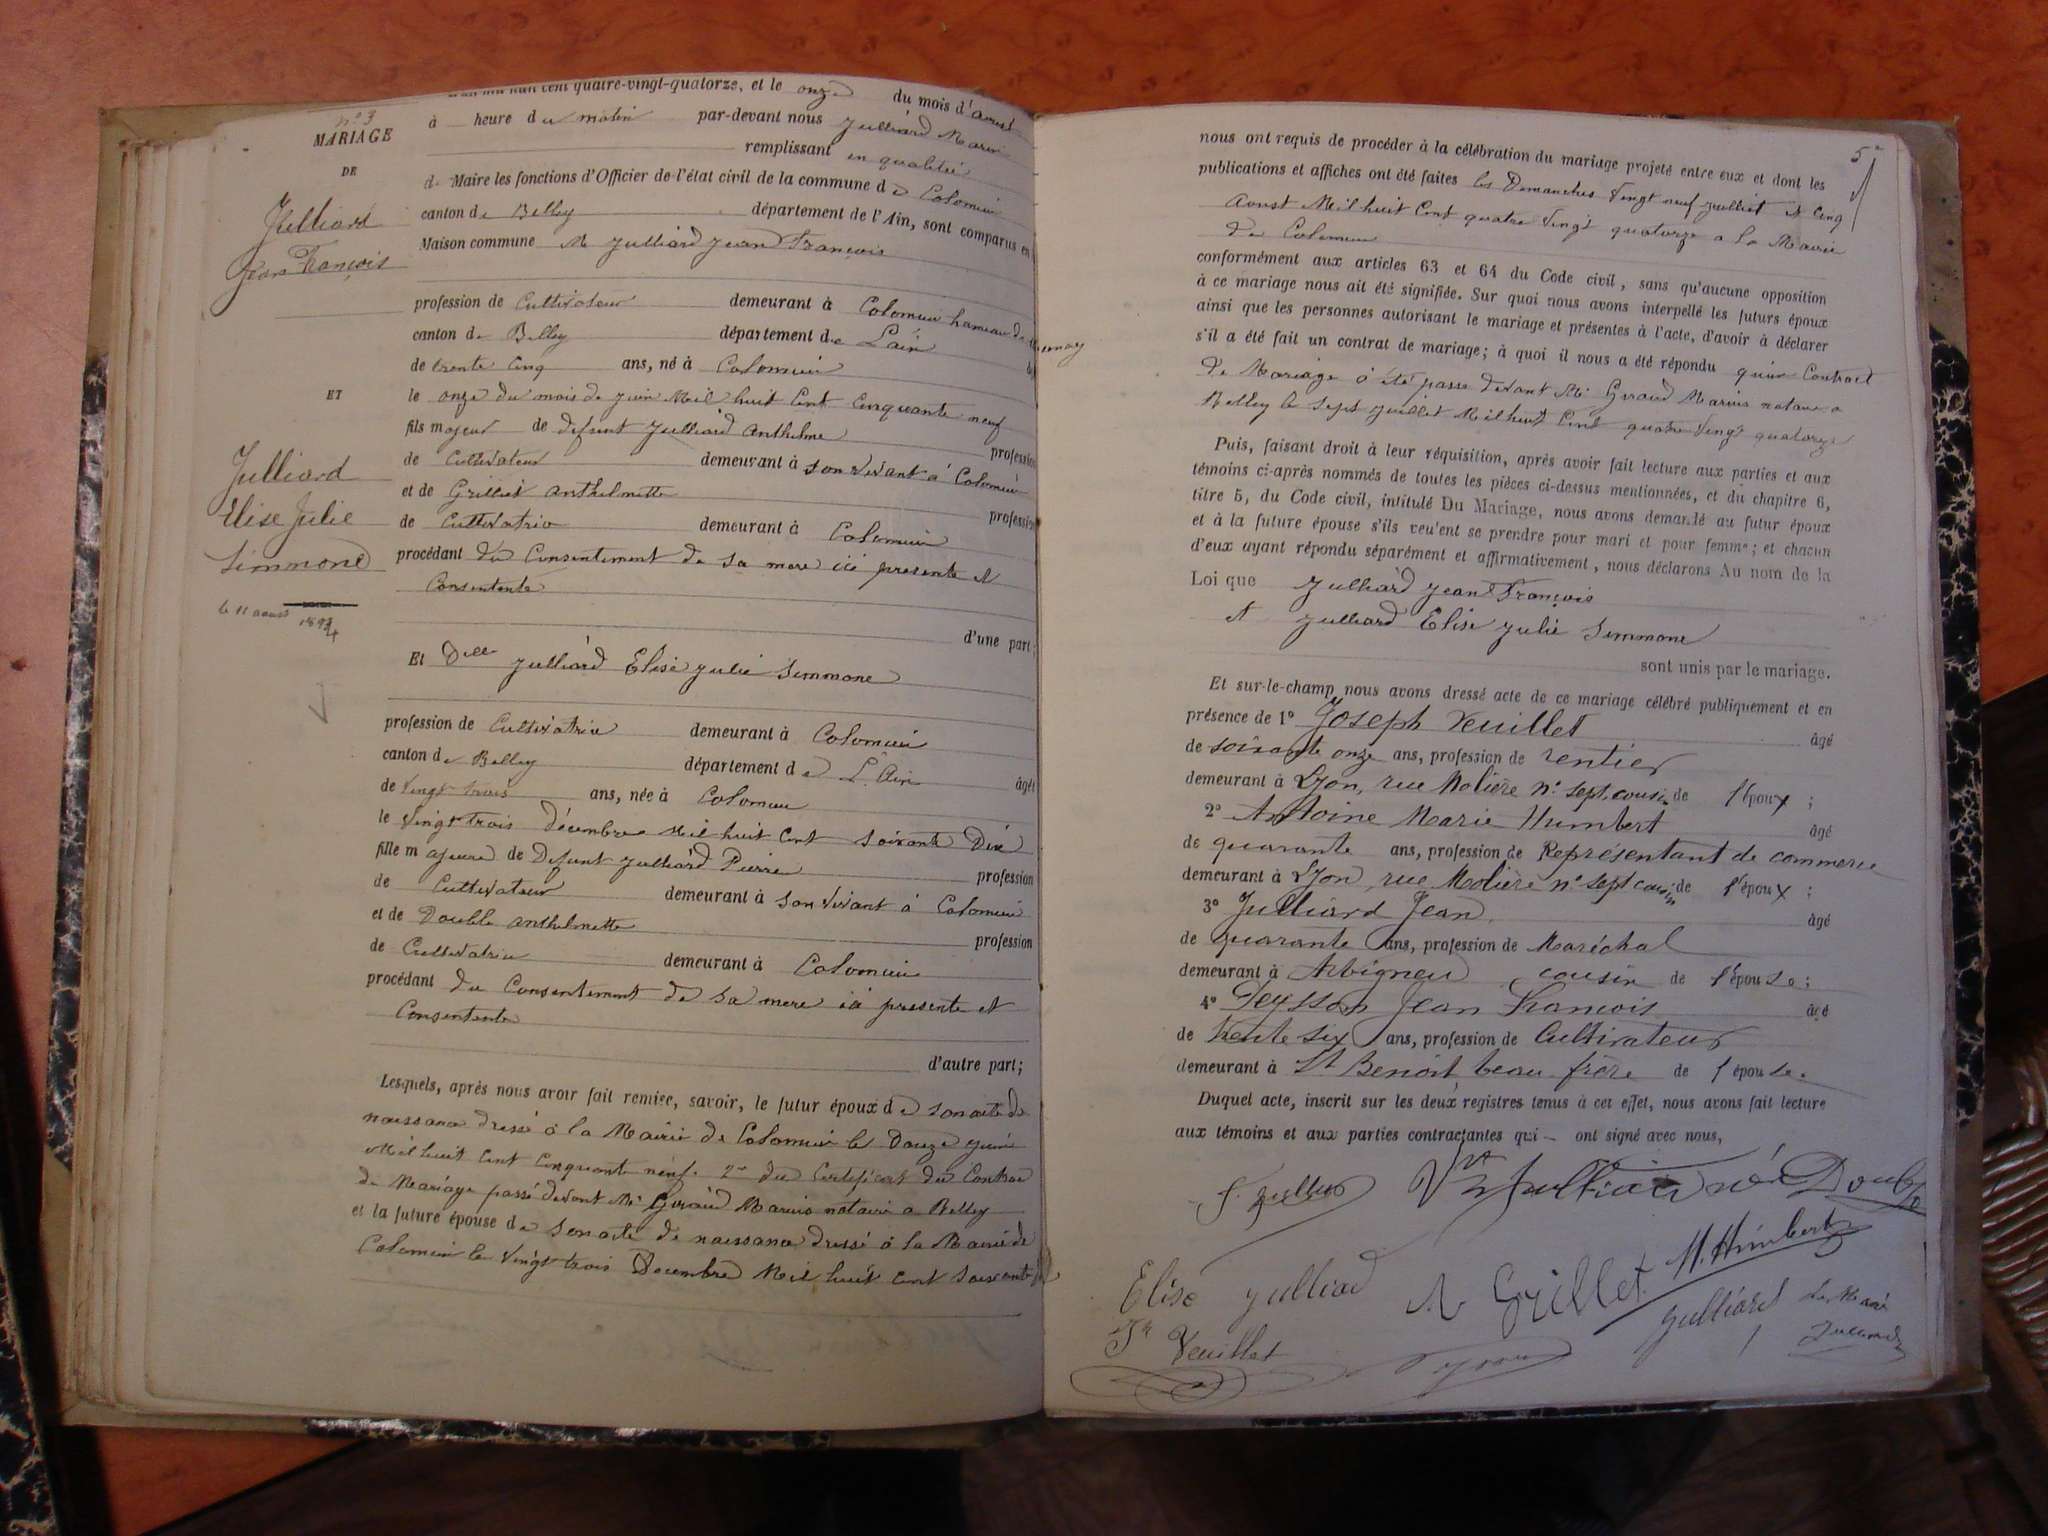 n° 3
MARIAGE
DE
Julliard
Jean François
ET
Julliard
Elise Julie
Simmone
le 11 aout
1894
cent quatre-vingt-quatorze, et le onze du mois d'aoust
à heure du matin par-devant nous Julliard Marie
remplissant en qualitée
de Maire les fonctions d'Officier de l'état civil de la commune de Colomieu
canton de Belley département de l'Ain, sont comparus en
Maison commune M Julliard Jean François
profession de Cultivateur demeurant à Colomieu hameau de
canton de Belley département de Lain
de trente cinq ans, né à Colomieu
le onze du mois de juin Mil huit Cent Cinquante neuf
fils majeur de defunt Julliard Anthelme profession
de Cultivateur demeurant à son vivant à Colomieu
et de Grillet Anthelmette profession
de Cultivatrice demeurant à Colomieu
procédant du Consentement de sa mere ici presente et
Consentente
d'une part;
Et Dlle Julliard Elise Julie Simmone
profession de Cultivatrice demeurant à Colomieu
canton de Belley département de L'Ain âgée
de Vingt trois ans, née à Colomieu
le Vingt trois décembre Mil huit Cent soixante Dix
fille majeure de Defunt Julliard Pierre profession
de Cultivateur demeurant à son vivant à Colomieu
et de Double Anthelmette profession
de Cultivatrice demeurant à Colomieu
procédant du Consentement de sa mere ici presente et
Consentente
d'autre part;
Lesquels, après nous avoir fait remise, savoir, le futur époux de son acte de
naissance dressé à la Mairie de Colomieu le Douze juin
Mil huit Cent Cinquante neuf. 2° du Certificat du Contrac
de Mariage passé devant Me Giraud Marius notaire a Belley
et la future épouse de son acte de naissance dressé à la Mairie de
Colomieu le Vingt trois Decembre Mil huit Cent soixante
5
nous ont requis de procéder à la célébration du mariage projeté entre eux et dont les
publications et affiches ont été faites les Demanches Vingt neuf juillet et Cinq
Aoust Mil huit Cent quatre Vingt quatorze a la Mairie
de Colomieu
conformément aux articles 63 et 64 du Code civil, sans qu'aucune opposition
à ce mariage nous ait été signifiée. Sur quoi nous avons interpellé les futurs époux
ainsi que les personnes autorisant le mariage et présentes à l'acte, d'avoir à déclarer
s'il a été fait un contrat de mariage; à quoi il nous a été répondu quun Contract
de Mariage à été passe devant Me Giraud Marius notaire a
Belley le sept juillet Mil huit Cent quatre Vingt quatorze
Puis, faisant droit à leur réquisition, après avoir fait lecture aux parties et aux
témoins ci-après nommés de toutes les pièces ci-dessus mentionnées, et du chapitre 6,
titre 5, du Code civil, intitulé Du Mariage, nous avons demandé au futur époux
et à la future épouse s'ils veulent se prendre pour mari et pour femme; et chacun
d'eux ayant répondu séparément et affirmativement, nous déclarons Au nom de la
Loi que Julliard Jean François
et Julliard Elise Julie Simmone
sont unis par le mariage.
Et sur-le-champ nous avons dressé acte de ce mariage célébré publiquement et en
présence de 1° Joseph Veuillet âgé
de soixante onze ans, profession de rentier
demeurant à Lyon, rue Molière n° sept, cousin de l'époux ;
2° Antoine Marie Humbert âgé
de quarante ans, profession de Représentant de commerce
demeurant à Lyon, rue Molière n° sept cousin de l'époux ;
3° Julliard Jean âgé
de quarante ans, profession de Maréchal
demeurant à Arbignieu cousin de l'épouse ;
4° Peysson Jean François âgé
de trente six ans, profession de Cultivateur
demeurant à St Benoit beau frère de l'épouse.
Duquel acte, inscrit sur les deux registres tenus à cet effet, nous avons fait lecture
aux témoins et aux parties contractantes qui - ont signé avec nous,
Vve Julliard née Double
M. Humbert
Elise Julliard
Grillet
Julliard
Le Maire
Jh Veuillet